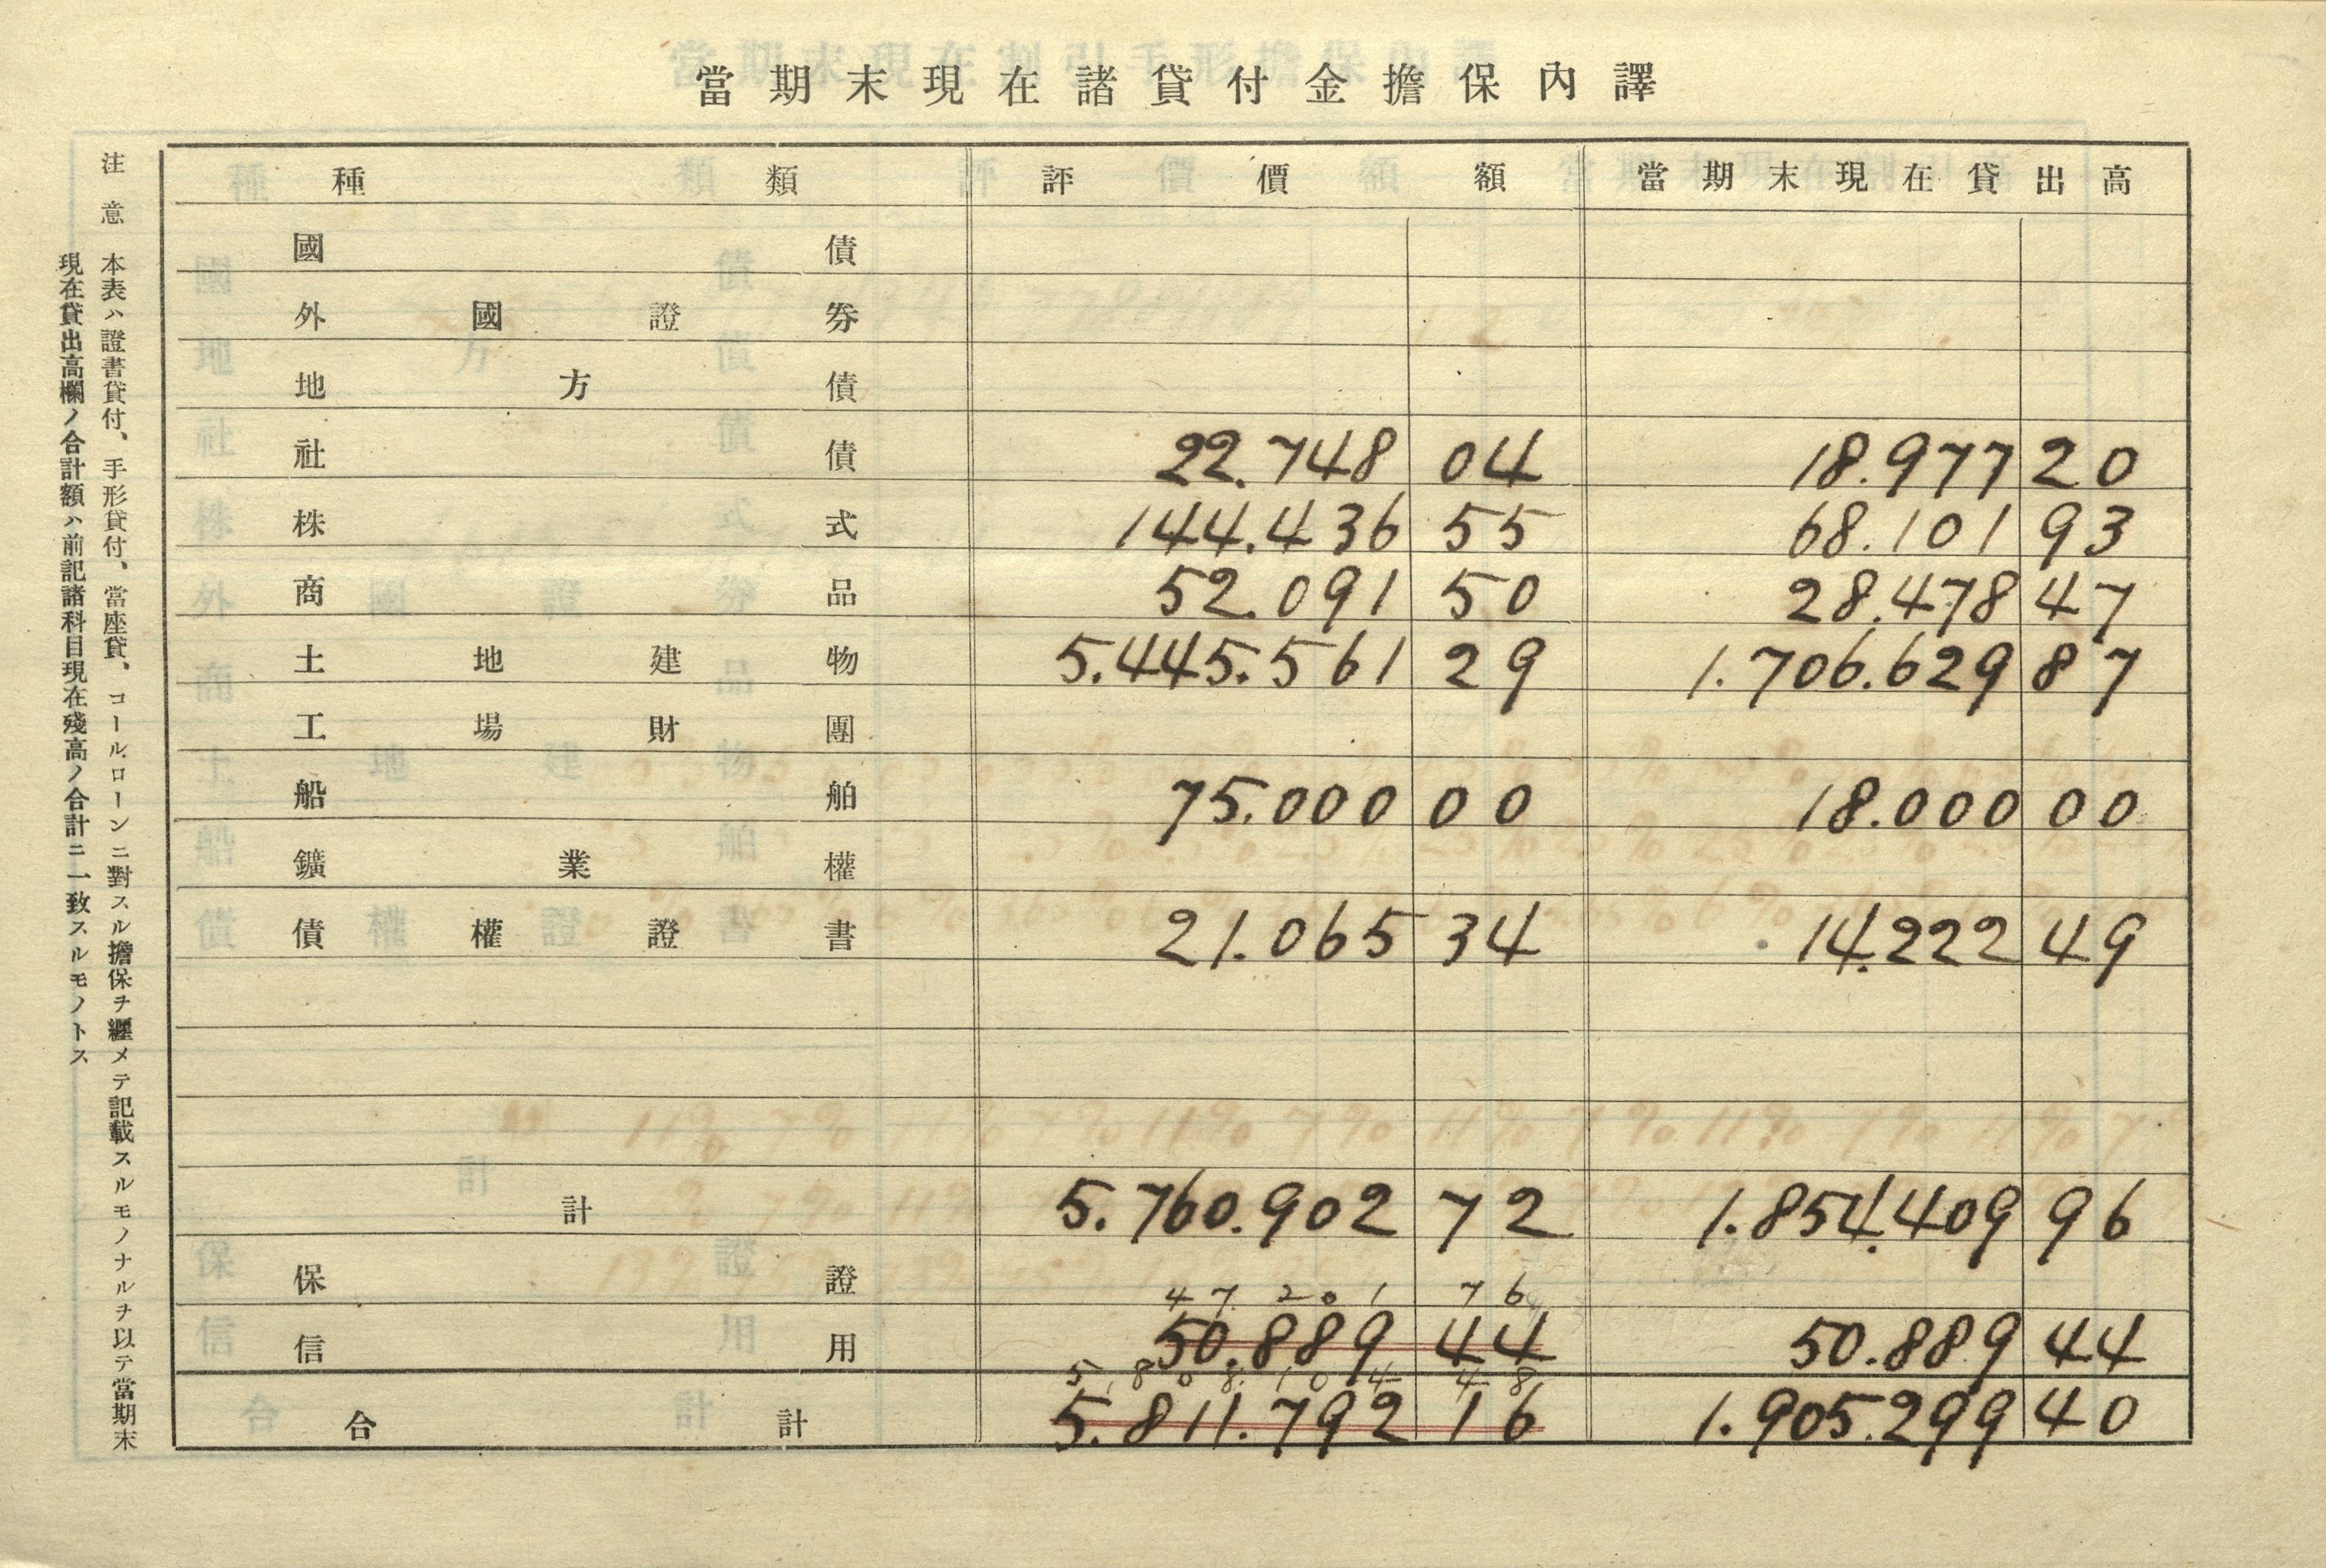 當期末現在諸貸付金擔保內譯
種類 評價額 當期末現在貸出高
國債
外國證券
地方債
社債 22.748 04 18.977 20
株式 144.436 55 68.101 93
商品 52.091 50 28.478 47
土地建物 5.445.561 29 1.706.629 87
工場財團
船舶 75.000 00 18.000 00
鑛業權
債權證書 21.065 34 14.222 49
計 5.760.902 72 1.854.409 96
保證
47.201 76
信用 50.889 44 50.889 44
5.808.104 48
合計 5.811.792 16 1.905.299 40
注意 本表ハ證書貸付、手形貸付、當座貸、コールローンニ對スル擔保ヲ纒メテ記載スルモノナルヲ以テ當期末
現在貸出高欄ノ合計額ハ前記諸科目現在殘高ノ合計ニ一致スルモノトス